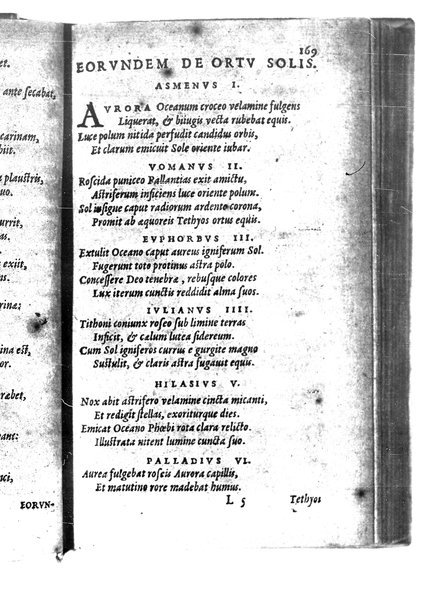 et.
ante secabat,
carinam,
biit.
plaustris,
uo.
urrit,
s.
exiit,
rinæ:
ina est,
or.
ræbet,
uant:
nci,
EORVN-
169
EORVNDEM DE ORTV SOLIS.
ASMENVS I.
AVRORA Oceanum croceo velamine fulgens
Liquerat, & biiugis vecta rubebat equis.
Luce polum nitida perfudit candidus orbis,
Et clarum emicuit Sole oriente iubar.
VOMANVS II.
Roscida puniceo Pallantias exit amictu,
Astriferum inficiens luce oriente polum.
Sol insigne caput radiorum ardente corona,
Promit ab æquoreis Tethyos ortus equis.
EVPHORBVS III.
Extulit Oceano caput aureus igniferum Sol.
Fugerunt toto protinus astra polo.
Concessere Deo tenebræ, rebusque colores
Lux iterum cunctis reddidit alma suos.
IVLIANVS IIII.
Tithoni coniunx roseo sub limine terras
Inficit, & cælum lutea sidereum.
Cum Sol igniferos currus e gurgite magno
Sustulit, & claris astra fugauit equis.
HILASIVS V.
Nox abit astrifero velamine cincta micanti,
Et redigit stellas, exoriturque dies.
Emicat Oceano Phœbi rota clara relicto.
Illustrata nitent lumine cuncta suo.
PALLADIVS VI.
Aurea fulgebat roseis Aurora capillis,
Et matutino rore madebat humus.
L 5 Tethyos